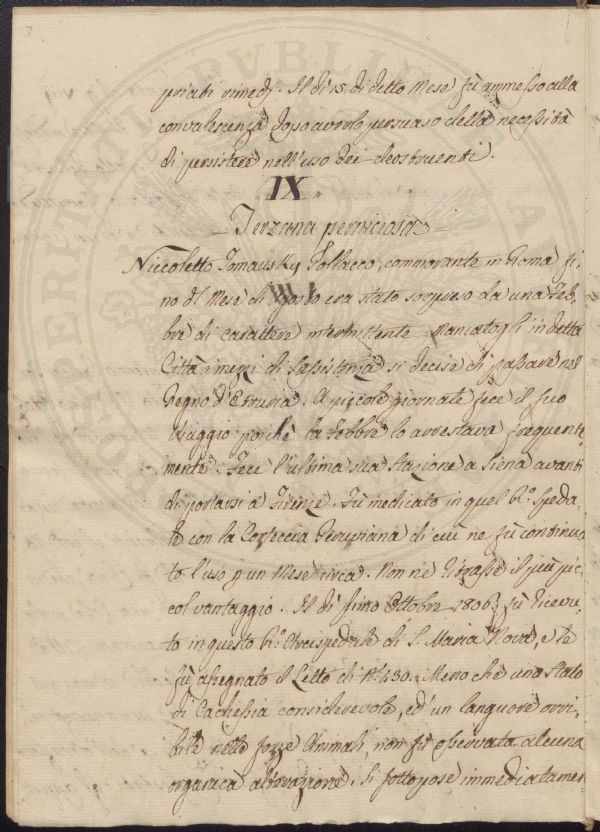 priati rimedj. Il dì 15 di detto Mese fù ammesso alla
convalescenza dopo averlo persuaso della necessità
di persistere nell'uso dei deostruenti.
IX
Terzana perniciosa
Niccoletto Tomausky Pollacco, commorante in Roma fi,
no del Mese di Agosto era stato sorpreso da una Feb,
bre di carattere intermittente. Mancatogli in detta
Città i mezzi di sussistenza si decise di passare nel
Regno d'Etruria. A piccole giornate fece il suo
Viaggio poichè la Febbre lo arrestava frequente
mente. Fece l'ultima sua stazione a Siena avanti
di portarsi a Firenze. Fù medicato in quel R.o Speda
le con la Corteccia Peruviana di cui ne fù continua
to l'uso p un Mese circa. Non ne ritrasse il più pic,
col vantaggio. Il dì primo Ottobre 1806. fù ricevu,
to in questo R.o Arcispedale di S. Maria Nova, e le
fù assegnato il Letto di N.o 430. Meno che uno stato
di Cachessia considerevole, ed un languore orri,
bile nelle forze Animali, non fù osservata alcuna
organica alterazione. Si sottopose immediatamen